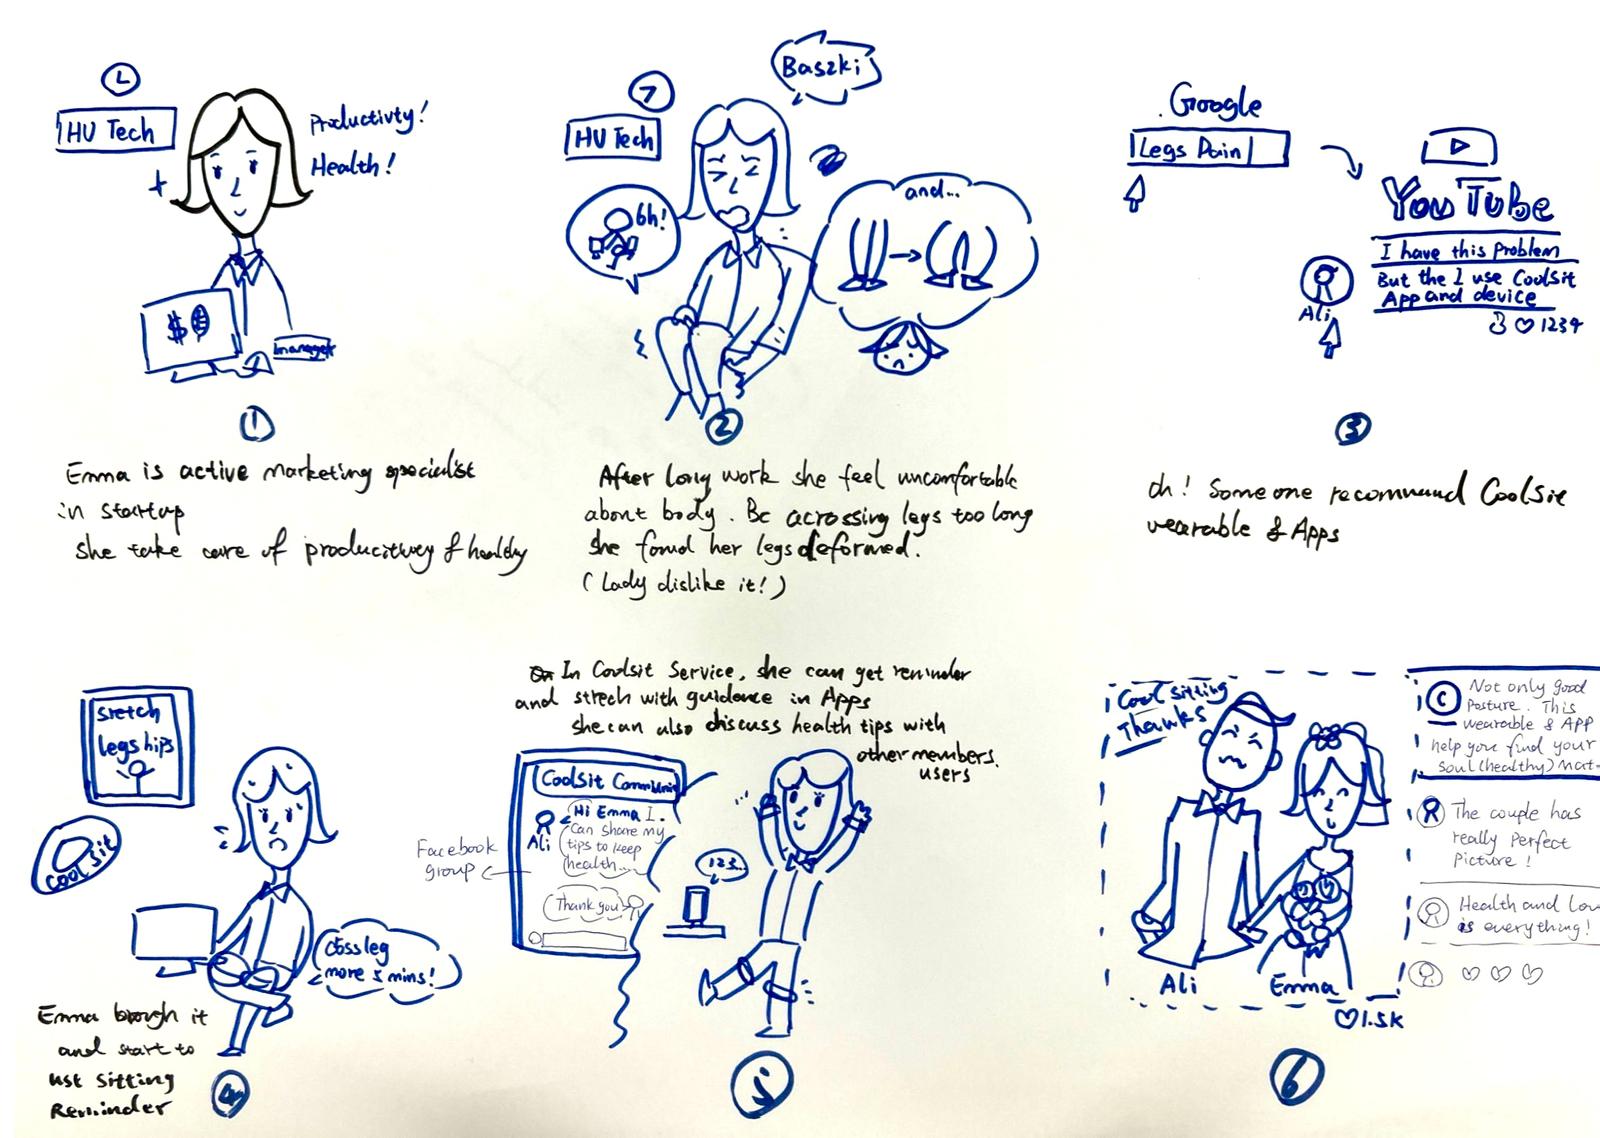 HU Tech
Productivty!
Health!
$
manager
1
Emma is active marketing specialist
in startup
she take care of producitivey & healthy
HU Tech
Baszki
6h!
and...
2
After long work she feel uncomfortable
about body. Bc acrossing legs too long
she found her legs deformed.
(Lady dislike it!)
Google
Legs Pain
YouTube
I have this problem
But the I use Coolsit
App and device
Ali
1234
3
oh! Someone recommend Coolsit
wearable & Apps
stetch
legs hips
coolsit
Cossleg
more 5 mins!
Emma brough it
and start to
use sitting
Reminder
4
In Coolsit Service, she can get reminder
and strech with guidance in Apps
she can also discuss health tips with
other members.
users
Coolsit
Hi Emma I.
Can share my
tips to keep
health...
Ali
Thank you
Facebook
group
123..
5
Cool sitting
Thanks
Ali
Emma
1.5K
C
Not only good
Posture. This
wearable & APP
help you find your
soul (healthy) mat-
The couple has
really perfect
Picture!
Health and Lov
is everything!
6